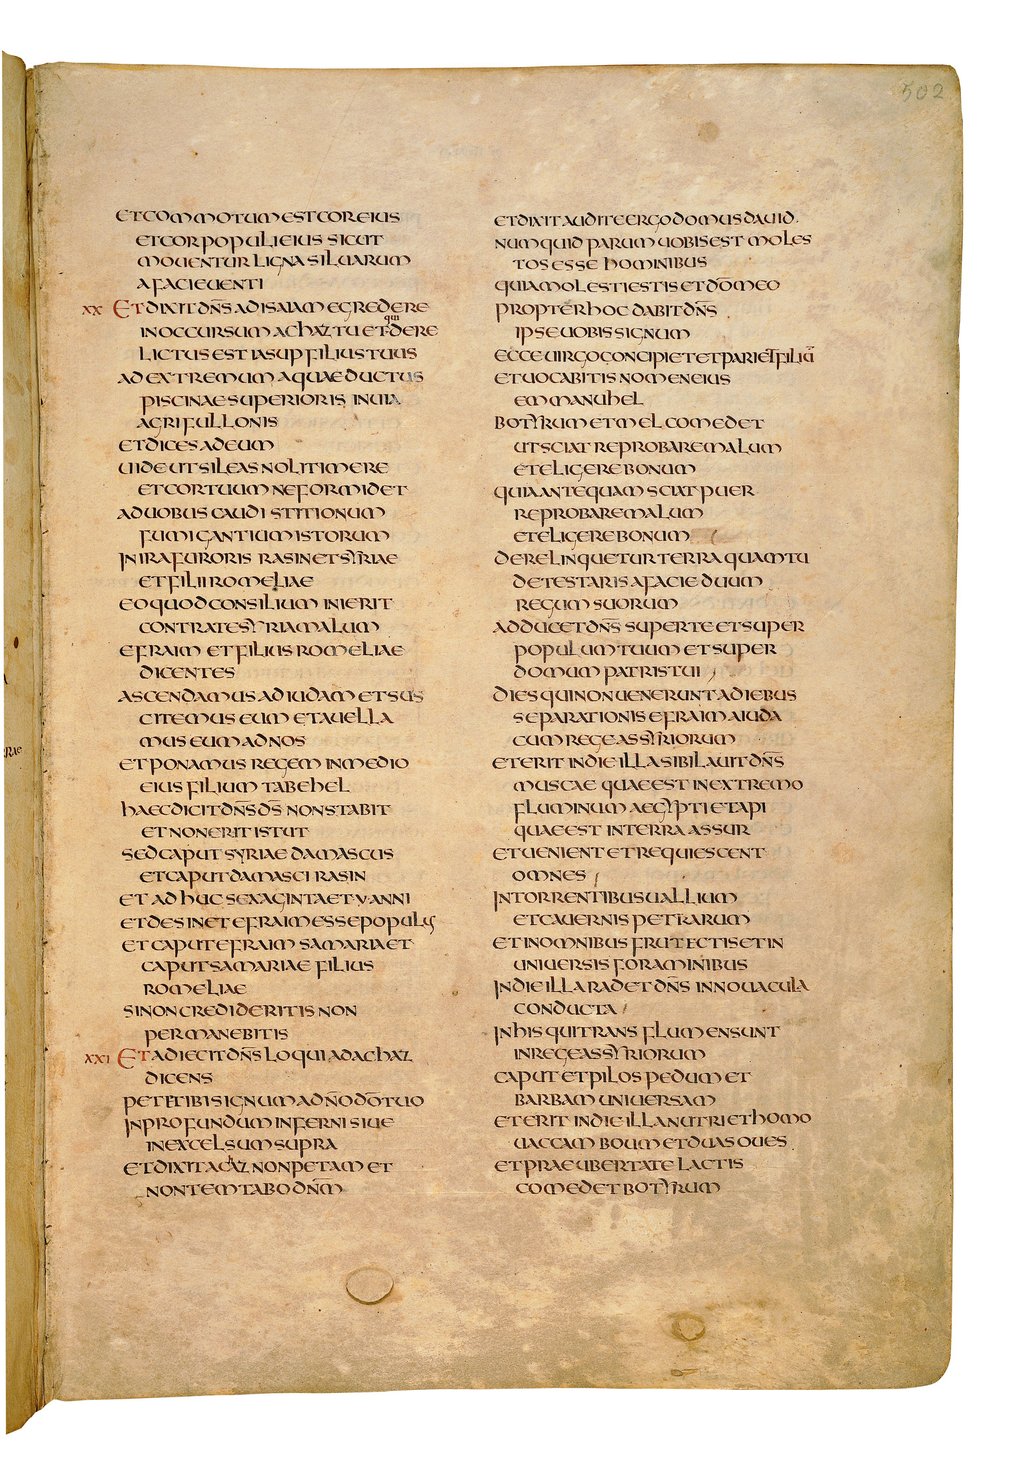 502
ETCOMMOTUMESTCOREIUS
ETCORPOPULIEIUS SICUT
MOUENTUR LIGNA SILUARUM
A FACIE UENTI
XX ETDIXITDN̄S AD ISAIAM EGREDERE
IN OCCURSUM ACHAZ TU ET DERE
qui
LICTUS EST IASUP FILIUS TUUS
AD EXTREMUM AQUAE DUCTUS
PISCINAE SUPERIORIS IN UIA
AGRI FULLONIS
ET DICES AD EUM
UIDE UT SILEAS NOLI TIMERE
ET COR TUUM NE FORMIDET
A DUOBUS CAUDIS TITIONUM
FUMIGANTIUM ISTORUM
IN IRA FURORIS RASIN ET SYRIAE
ET FILII ROMELIAE
EO QUOD CONSILIUM INIERIT
CONTRA TE SYRIA MALUM
EFRAIM ET FILIUS ROMELIAE
DICENTES
ASCENDAMUS AD IUDAM ET SUS
CITEMUS EUM ET AUELLA
MUS EUM AD NOS
ET PONAMUS REGEM IN MEDIO
EIUS FILIUM TABEHEL
HAEC DICIT DN̄S DS̄ NON STABIT
ET NON ERIT ISTUT
SED CAPUT SYRIAE DAMASCUS
ET CAPUT DAMASCI RASIN
ET ADHUC SEXAGINTA ET·V·ANNI
ET DESINET EFRAIM ESSE POPULUS
ET CAPUT EFRAIM SAMARIA ET
CAPUT SAMARIAE FILIUS
ROMELIAE
SI NON CREDIDERITIS NON
PERMANEBITIS
XXI ET ADIECIT DN̄S LOQUI AD ACHAZ
DICENS
PETE TIBI SIGNUM A DN̄O DŌ TUO
IN PROFUNDUM INFERNI SIUE
IN EXCELSUM SUPRA
ET DIXIT ACHAZ NON PETAM ET
NON TEMTABO DN̄M
ET DIXIT AUDITE ERGO DOMUS DAUID·
NUMQUID PARUM UOBIS EST MOLES
TOS ESSE HOMINIBUS
QUIA MOLESTI ESTIS ET DŌ MEO
PROPTER HOC DABIT DN̄S
IPSE UOBIS SIGNUM
ECCE UIRGO CONCIPIET ET PARIET FILIŪ
ET UOCABITIS NOMEN EIUS
EMMANUHEL
BOTYRUM ET MEL COMEDET
UT SCIAT REPROBARE MALUM
ET ELIGERE BONUM
QUIA ANTEQUAM SCIAT PUER
REPROBARE MALUM
ET ELIGERE BONUM
DERELINQUETUR TERRA QUAM TU
DETESTARIS A FACIE DUUM
REGUM SUORUM
ADDUCET DN̄S SUPER TE ET SUPER
POPULUM TUUM ET SUPER
DOMUM PATRIS TUI
DIES QUI NON UENERUNT A DIEBUS
SEPARATIONIS EFRAIM A IUDA
CUM REGE ASSYRIORUM
ET ERIT IN DIE ILLA SIBILAUIT DN̄S
MUSCAE QUAE EST IN EXTREMO
FLUMINUM AEGYPTI ET API
QUAE EST IN TERRA ASSUR
ET UENIENT ET REQUIESCENT
OMNES
IN TORRENTIBUS UALLIUM
ET CAUERNIS PETRARUM
ET IN OMNIBUS FRUTECTIS ET IN
UNIUERSIS FORAMINIBUS
IN DIE ILLA RADET DN̄S IN NOUACULA
CONDUCTA
IN HIS QUI TRANS FLUMEN SUNT
IN REGE ASSYRIORUM
CAPUT ET PILOS PEDUM ET
BARBAM UNIUERSAM
ET ERIT IN DIE ILLA NUTRIET HOMO
UACCAM BOUM ET DUAS OUES
ET PRAE UBERTATE LACTIS
COMEDET BOTYRUM